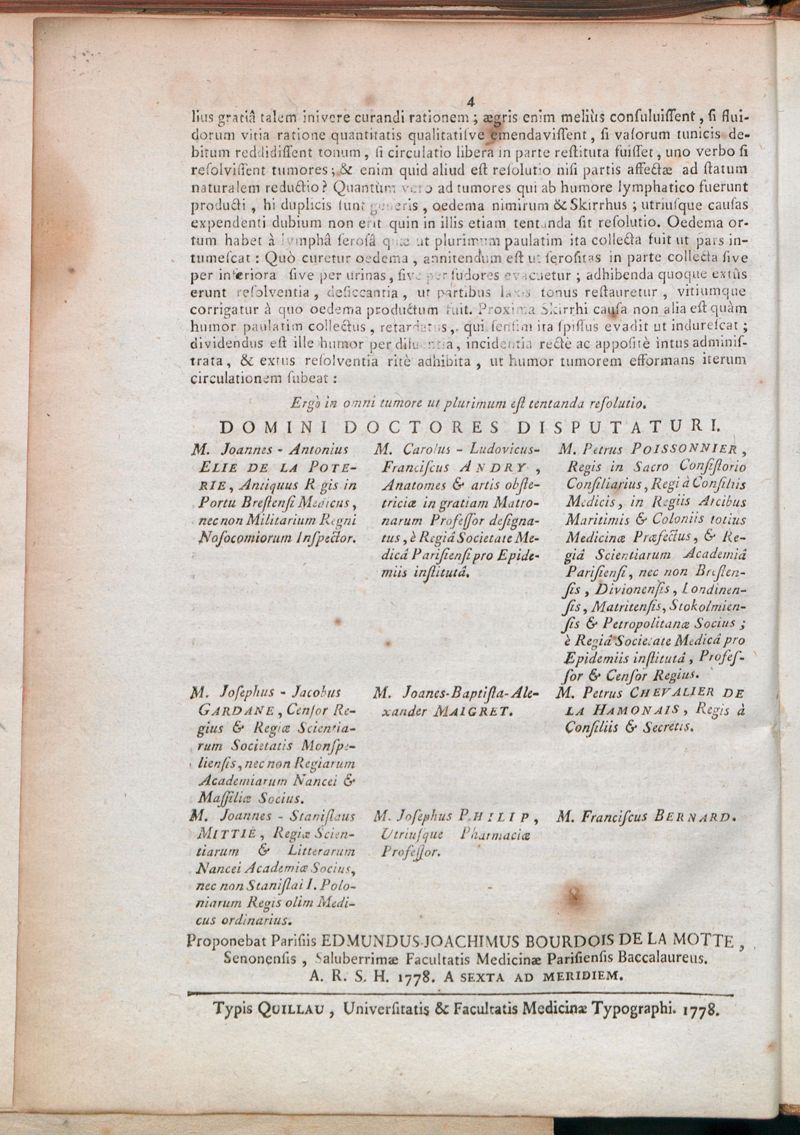 4
lius gratiâ talem inivere curandi rationem ; ægris enim meliùs consuluissent, si flui-
dorum vitia ratione quantitatis qualitatisve emendavissent, si vasorum tunicis de-
bitum reddidissent tonum, si circulatio libera in parte restituta fuisset, uno verbo si
resolvissent tumores ; & enim quid aliud est resolutio nisi partis affectæ ad statum
naturalem reductio ? Quantùm vero ad tumores qui ab humore lymphatico fuerunt
producti, hi duplicis sunt generis, oedema nimirum & Skirrhus ; utriusque causas
expendenti dubium non erit quin in illis etiam tentanda sit resolutio. Oedema or-
tum habet à lymphâ serosâ quæ ut plurimum paulatim ita collecta fuit ut pars in-
tumescat : Quò curetur oedema, annitendum est ut serositas in parte collecta sive
per inferiora sive per urinas, sive per sudores evacuetur ; adhibenda quoque extùs
erunt resolventia, desiccantia, ut partibus laxis tonus restauretur, vitiumque
corrigatur à quo oedema productum fuit. Proxima Skirrhi causa non alia est quàm
humor paulatim collectus, retardatus, qui sensim ita spissus evadit ut indurescat ;
dividendus est ille humor per diluentia, incidentia rectè ac appositè intus adminis-
trata, & extus resolventia ritè adhibita, ut humor tumorem efformans iterum
circulationem subeat :
Ergò in omni tumore ut plurimum est tentanda resolutio.
DOMINI DOCTORES DISPUTATURI.
M. Joannes - Antonius
ELIE DE LA POTE-
RIE, Antiquus Regis in
Portu Brestensi Medicus,
necnon Militarium Regni
Nosocomiorum Inspector.
M. Carolus - Ludovicus-
Franciscus ANDRY,
Anatomes & artis obste-
triciæ in gratiam Matro-
narum Professor designa-
tus, è Regiâ Societate Me-
dicâ Parisiensi pro Epide-
miis institutâ.
M. Petrus POISSONNIER,
Regis in Sacro Consistorio
Consiliarius, Regi à Consiliis
Medicis, in Regiis Arcibus
Maritimis & Coloniis totius
Medicinæ Præfectus, & Re-
giâ Scientiarum Academiâ
Parisiensi, nec non Bresten-
sis, Divionensis, Londinen-
sis, Matritensis, Stokolmien-
sis & Petropolitanæ Socius ;
è Regiâ Societate Medicâ pro
Epidemiis institutâ, Profes-
sor & Censor Regius.
M. Josephus - Jacobus
GARDANE, Censor Re-
gius & Regiæ Scientia-
rum Societatis Monspe-
liensis, nec non Regiarum
Academiarum Nancei &
Massiliæ Socius.
M. Joanes-Baptista-Ale-
xander MAIGRET.
M. Petrus CHEVALIER DE
LA HAMONAIS, Regis à
Consiliis & Secretis.
M. Joannes - Stanislaus
MITTIÉ, Regiæ Scien-
tiarum & Litterarum
Nancei Academiæ Socius,
nec non Stanislai I. Polo-
niarum Regis olim Medi-
cus ordinarius.
M. Josephus PHILIP,
Utriusque Pharmaciæ
Professor.
M. Franciscus BERNARD.
Proponebat Parisiis EDMUNDUS-JOACHIMUS BOURDOIS DE LA MOTTE,
Senonensis, Saluberrimæ Facultatis Medicinæ Parisiensis Baccalaureus.
A. R. S. H. 1778. A SEXTA AD MERIDIEM.
Typis QUILLAU, Universitatis & Facultatis Medicinæ Typographi. 1778.